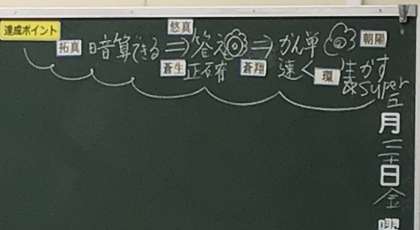 達成ポイント
拓真 暗算できる ⇒ 悠真 答え ⇒ かん単 朝陽
蒼生 正確 蒼翔 速く 環 生かす
Super
月
日
金